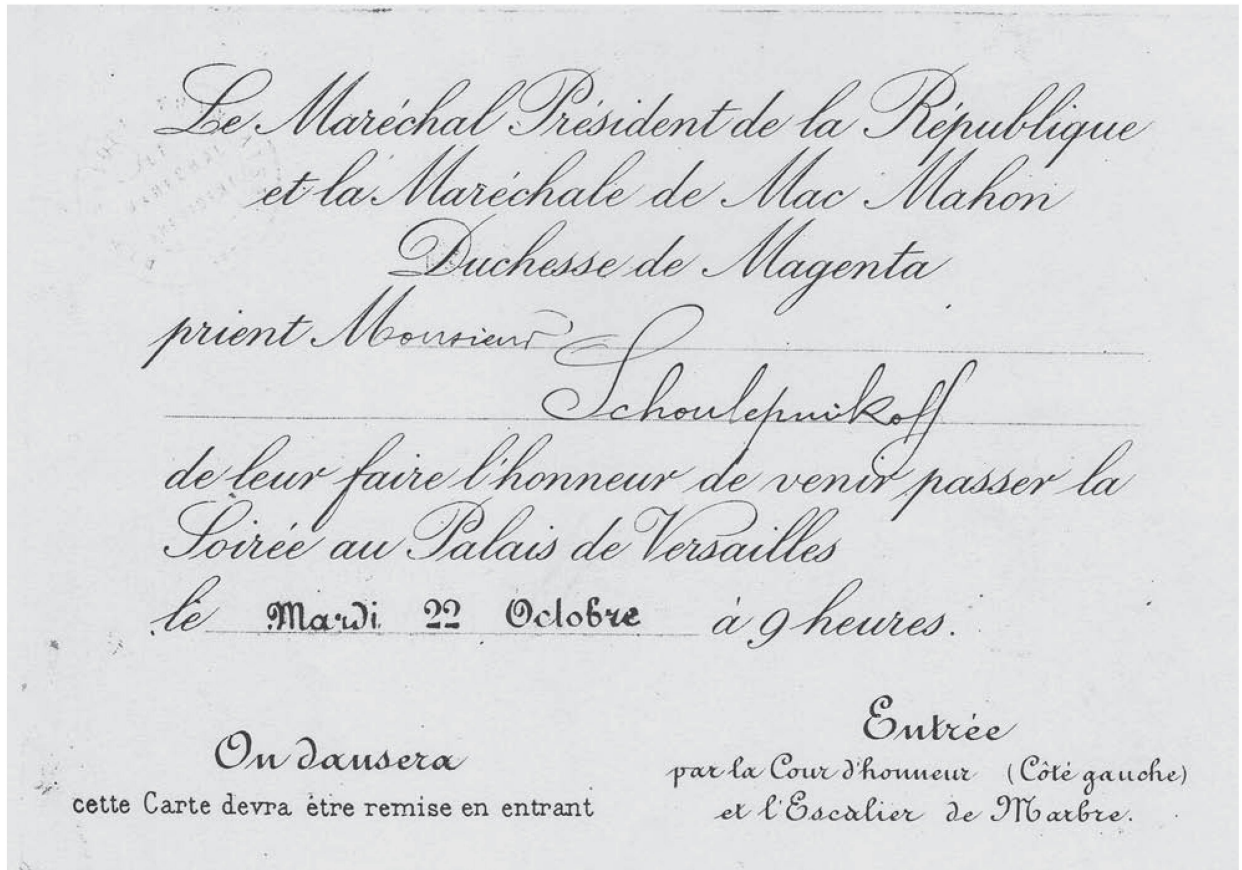 Le Maréchal Président de la République
et la Maréchale de Mac Mahon
Duchesse de Magenta
prient Monsieur
Schoulepnikoff
de leur faire l'honneur de venir passer la
Soirée au Palais de Versailles
le Mardi 22 Octobre à 9 heures.
On dansera
cette Carte devra être remise en entrant
Entrée
par la Cour d'honneur (Côté gauche)
et l'Escalier de Marbre.